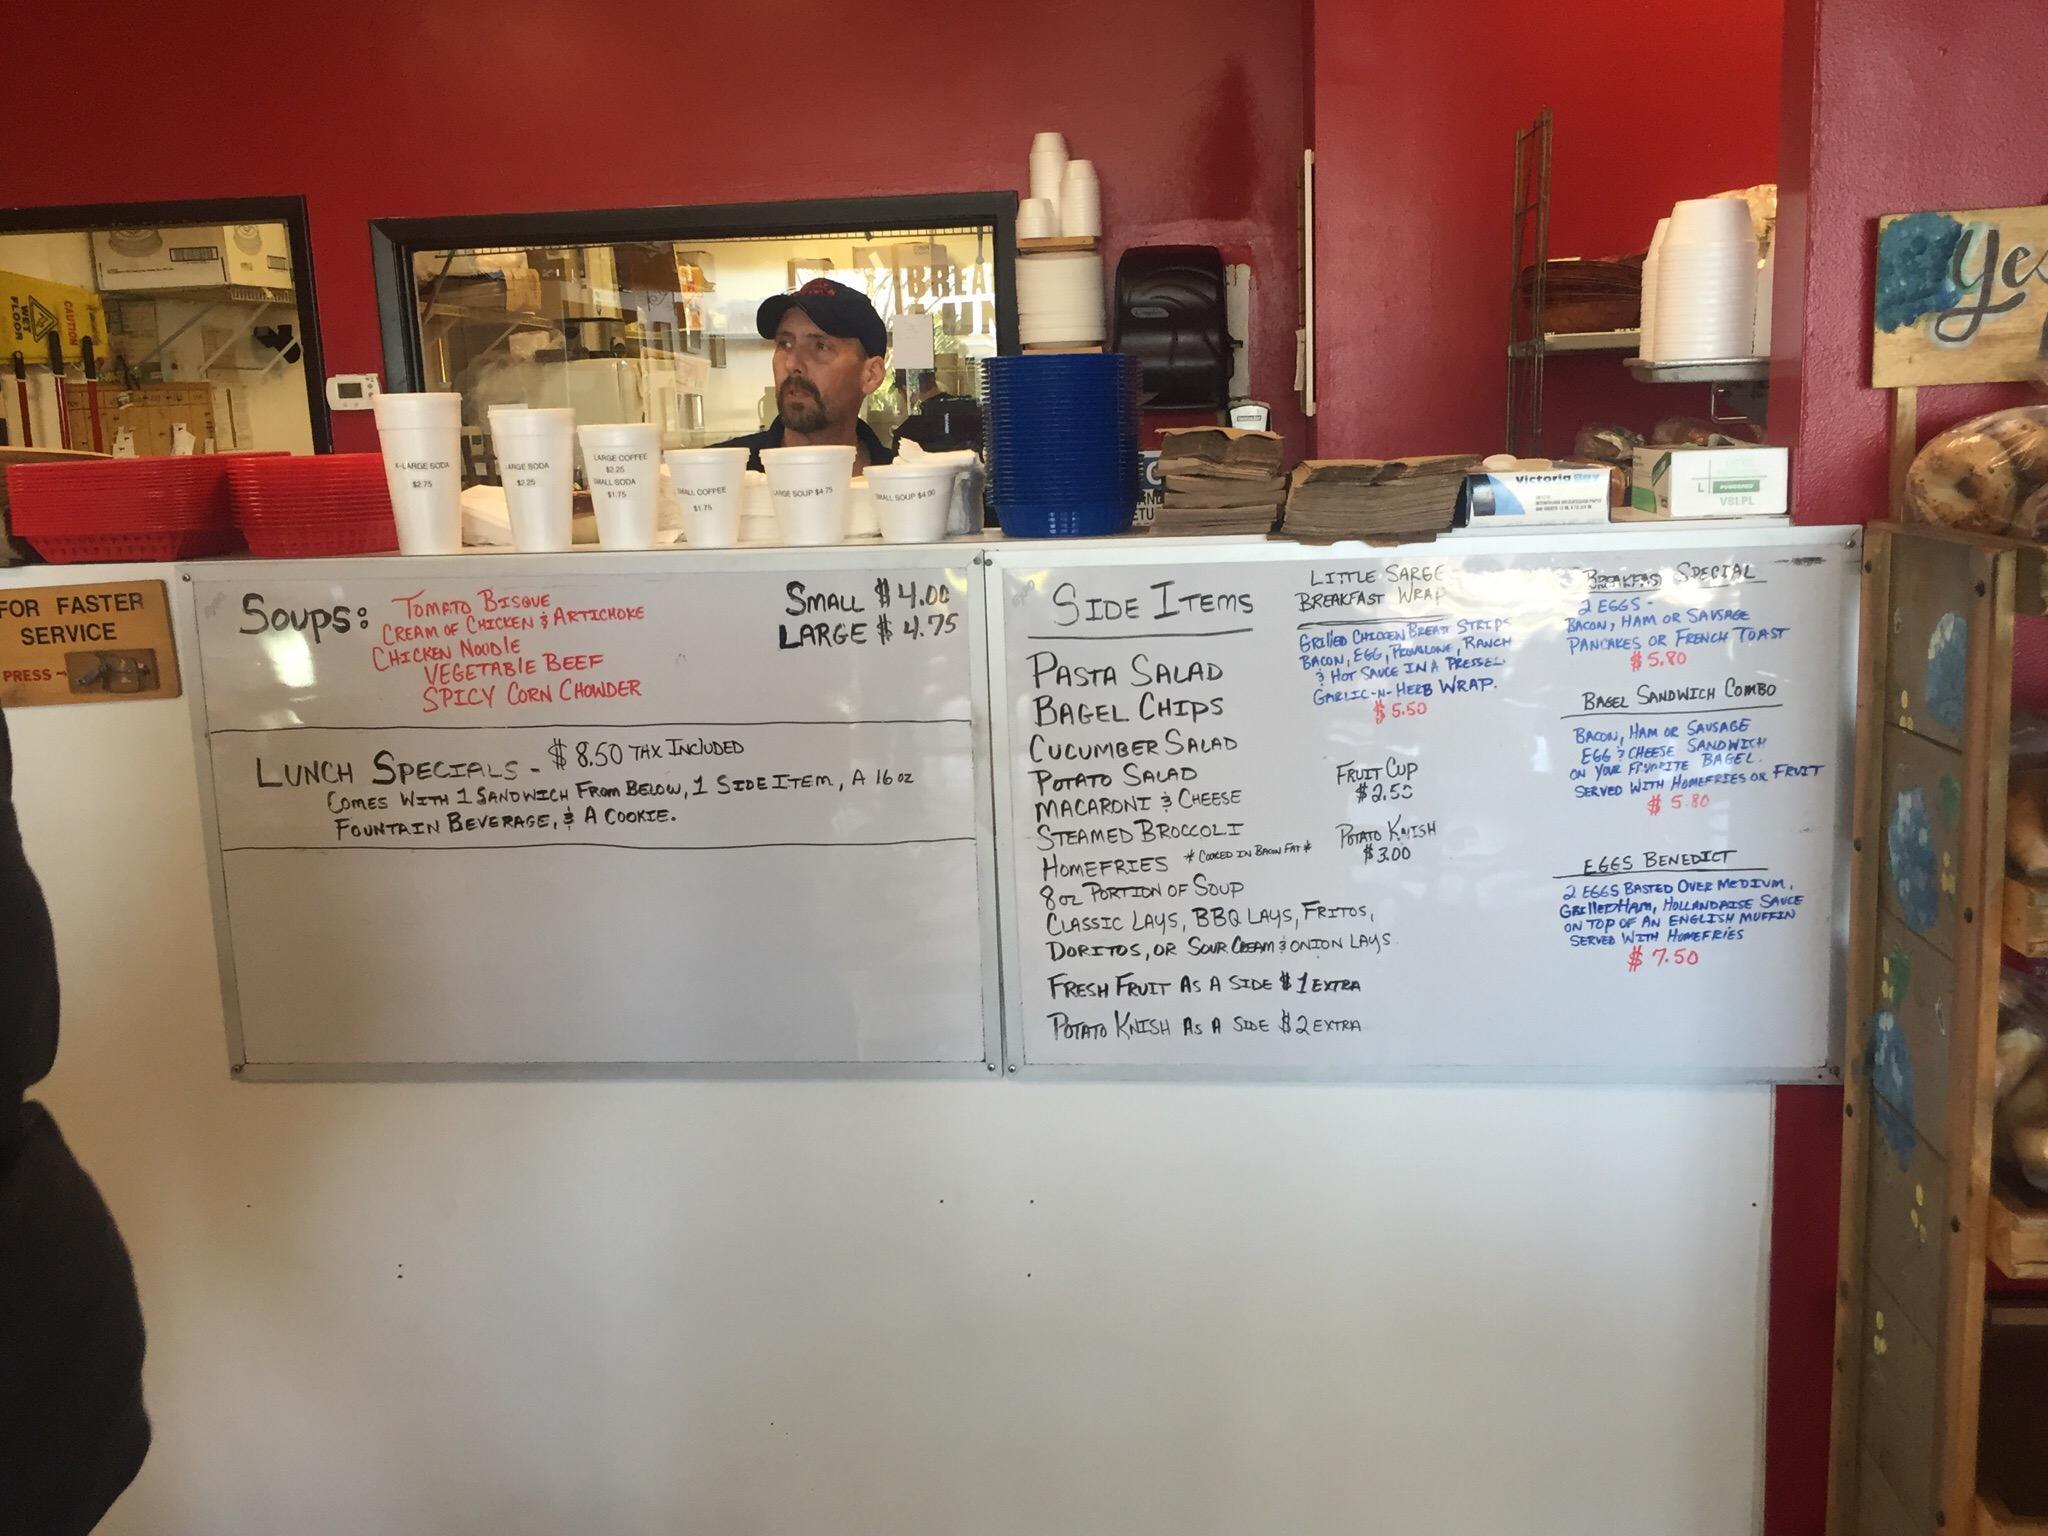 CAUTION
WET
FLOOR
X-LARGE SODA
$2.75
LARGE SODA
$2.25
LARGE COFFEE
$2.25
SMALL SODA
$1.75
SMALL COFFEE
$1.75
LARGE SOUP $4.75
SMALL SOUP $4.00
Victoria Bay
POWDERED
VBLPL
Yes
FOR FASTER
SERVICE
PRESS
SOUPS:
TOMATO BISQUE
CREAM OF CHICKEN & ARTICHOKE
CHICKEN NOODLE
VEGETABLE BEEF
SPICY CORN CHOWDER
SMALL $4.00
LARGE $4.75
LUNCH SPECIALS - $8.50 TAX INCLUDED
COMES WITH 1 SANDWICH FROM BELOW, 1 SIDE ITEM, A 16 oz
FOUNTAIN BEVERAGE, & A COOKIE.
SIDE ITEMS
PASTA SALAD
BAGEL CHIPS
CUCUMBER SALAD
POTATO SALAD
MACARONI & CHEESE
STEAMED BROCCOLI
HOMEFRIES *COOKED IN BACON FAT*
8 oz PORTION OF SOUP
CLASSIC LAYS, BBQ LAYS, FRITOS,
DORITOS, OR SOUR CREAM & ONION LAYS.
FRESH FRUIT AS A SIDE $1 EXTRA
POTATO KNISH AS A SIDE $2 EXTRA
LITTLE SARGE
BREAKFAST WRAP
GRILLED CHICKEN BREAST STRIPS
BACON, EGG, PROVOLONE, RANCH
& HOT SAUCE IN A PRESSED
GARLIC-N-HERB WRAP.
$5.50
FRUIT CUP
$2.50
POTATO KNISH
$3.00
BREAKFAS SPECIAL
2 EGGS -
BACON, HAM OR SAUSAGE
PANCAKES OR FRENCH TOAST
$5.80
BAGEL SANDWICH COMBO
BACON, HAM OR SAUSAGE
EGG & CHEESE SANDWICH
ON YOUR FAVORITE BAGEL.
SERVED WITH HOMEFRIES OR FRUIT
$5.80
EGGS BENEDICT
2 EGGS BASTED OVER MEDIUM,
GRILLED HAM, HOLLANDAISE SAUCE
ON TOP OF AN ENGLISH MUFFIN
SERVED WITH HOMEFRIES
$7.50